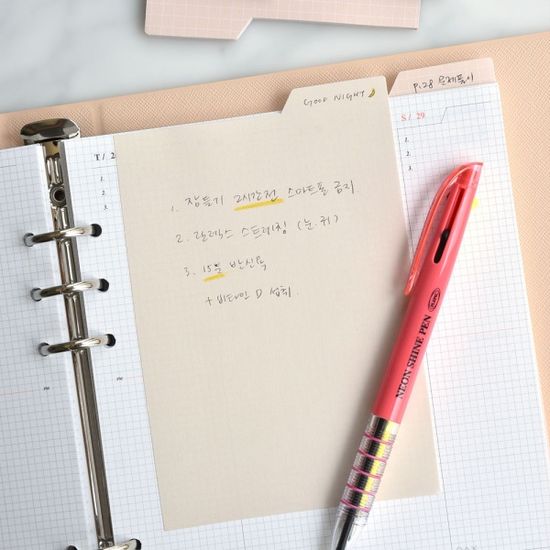 GOOD NIGHT
P.28 문제풀이
T / 2
1.
2.
3.
S / 29
1.
2.
3.
1. 잠들기 2시간전 스마트폰 금지
2. 릴렉스 스트레칭 (눈.귀)
3. 15분 반신욕
+ 비타민 D 섭취.
PM
PM
NEON SHINE PEN